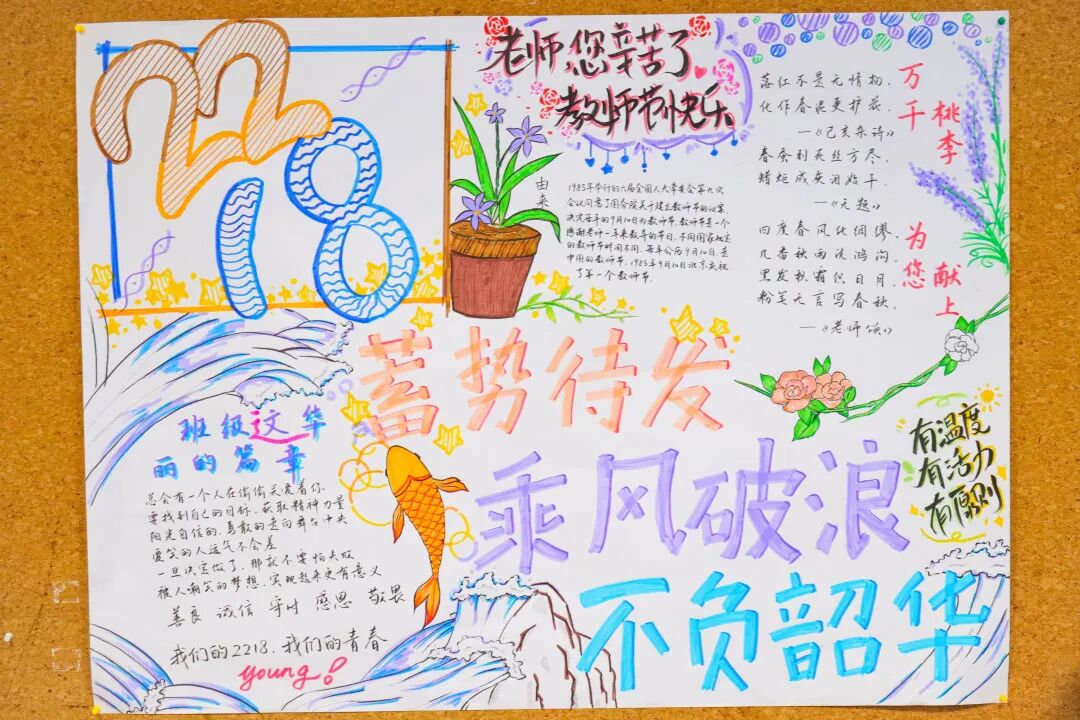 2218
老师，您辛苦了
教师节快乐
由来
1985年举行的六届全国人大常委会第九次
会议同意了国务院关于建立教师节的议案，
决定每年的9月10日为教师节。教师节是一个
感谢老师一年来教导的节日，不同国家规定
的教师节时间不同，每年公历9月10日，是
中国的教师节，1985年9月10日北京庆祝
了第一个教师节。
落红不是无情物，
化作春泥更护花。
—《己亥杂诗》
春蚕到死丝方尽，
蜡炬成灰泪始干。
—《无题》
四度春风化绸缪，
几番秋雨洗鸿沟。
黑发积霜织日月，
粉笔无言写春秋。
—《老师颂》
万千桃李
为您献上
蓄势待发
乘风破浪
不负韶华
有温度
有活力
有原则
班级这文华
丽的篇章
总会有一个人在偷偷关爱着你
要找到自己的目标，获取精神力量
阳光自信的，勇敢的走向舞台中央
爱笑的人运气不会差
一旦决定做了，那就不要怕失败
被人嘲笑的梦想，实现起来更有意义
善良 诚信 守时 感恩 敬畏
我们的2218，我们的青春
young！